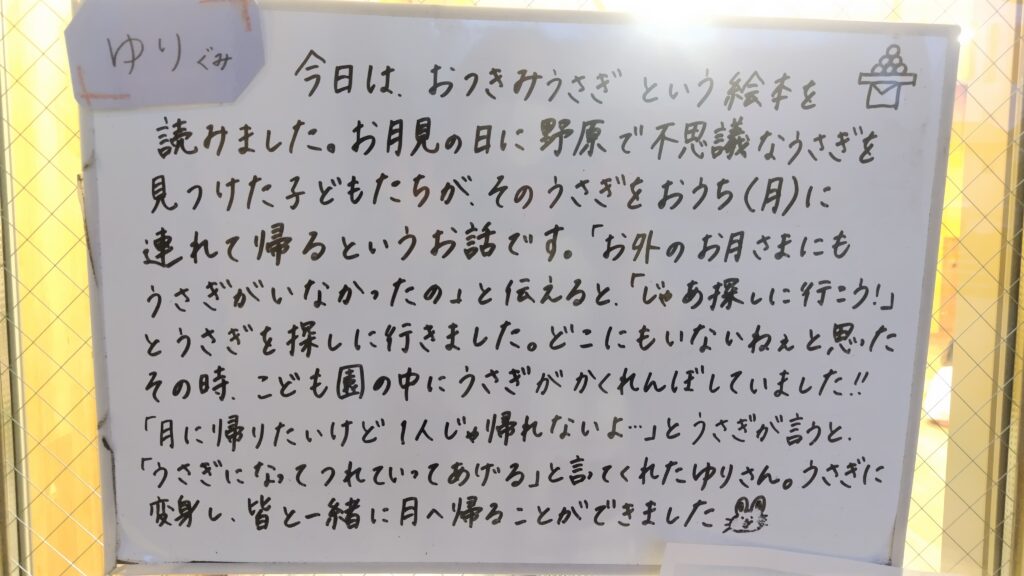 ゆりぐみ
今日は、おつきみうさぎ という絵本を
読みました。お月見の日に野原で不思議なうさぎを
見つけた子どもたちが、そのうさぎをおうち(月)に
連れて帰るというお話です。「お外のお月さまにも
うさぎがいなかったの」と伝えると、「じゃあ探しに行こう!」
とうさぎを探しに行きました。どこにもいないねぇと思った
その時、こども園の中にうさぎがかくれんぼしていました!!
「月に帰りたいけど 1人じゃ帰れないよ…」とうさぎが言うと、
「うさぎになって つれていってあげる」と言ってくれたゆりさん。うさぎに
変身し、皆と一緒に月へ帰ることができました